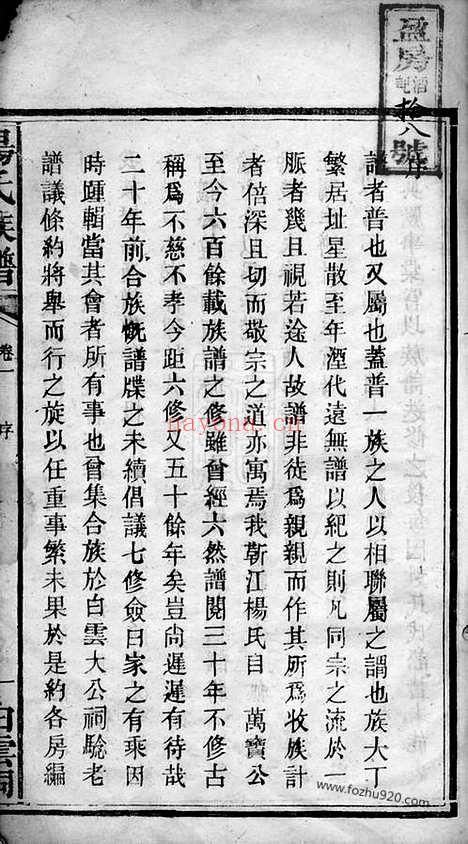 盈房
謄記
拾八號
序
譜者普也又屬也蓋普一族之人以相聯屬之謂也族大丁
繁居址星散至年湮代遠無譜以紀之則凡同宗之流於一
脈者幾且視若途人故譜非徒爲親親而作其所爲收族計
者倍深且切而敬宗之道亦寓焉我靳江楊氏自　萬寶公
至今六百餘載族譜之修雖曾經六然譜閱三十年不修古
稱爲不慈不孝今距六修又五十餘年矣豈尙遲遲有待哉
二十年前合族慨譜牒之未續倡議七修僉曰家之有乘因
時匯輯當其會者所有事也曾集合族於白雲大公祠騐老
譜議條約將舉而行之旋以任重事繁未果於是約各房編
楊氏族譜
卷一
序
一
白雲祠
nayona.cn
www.fozhu920.com